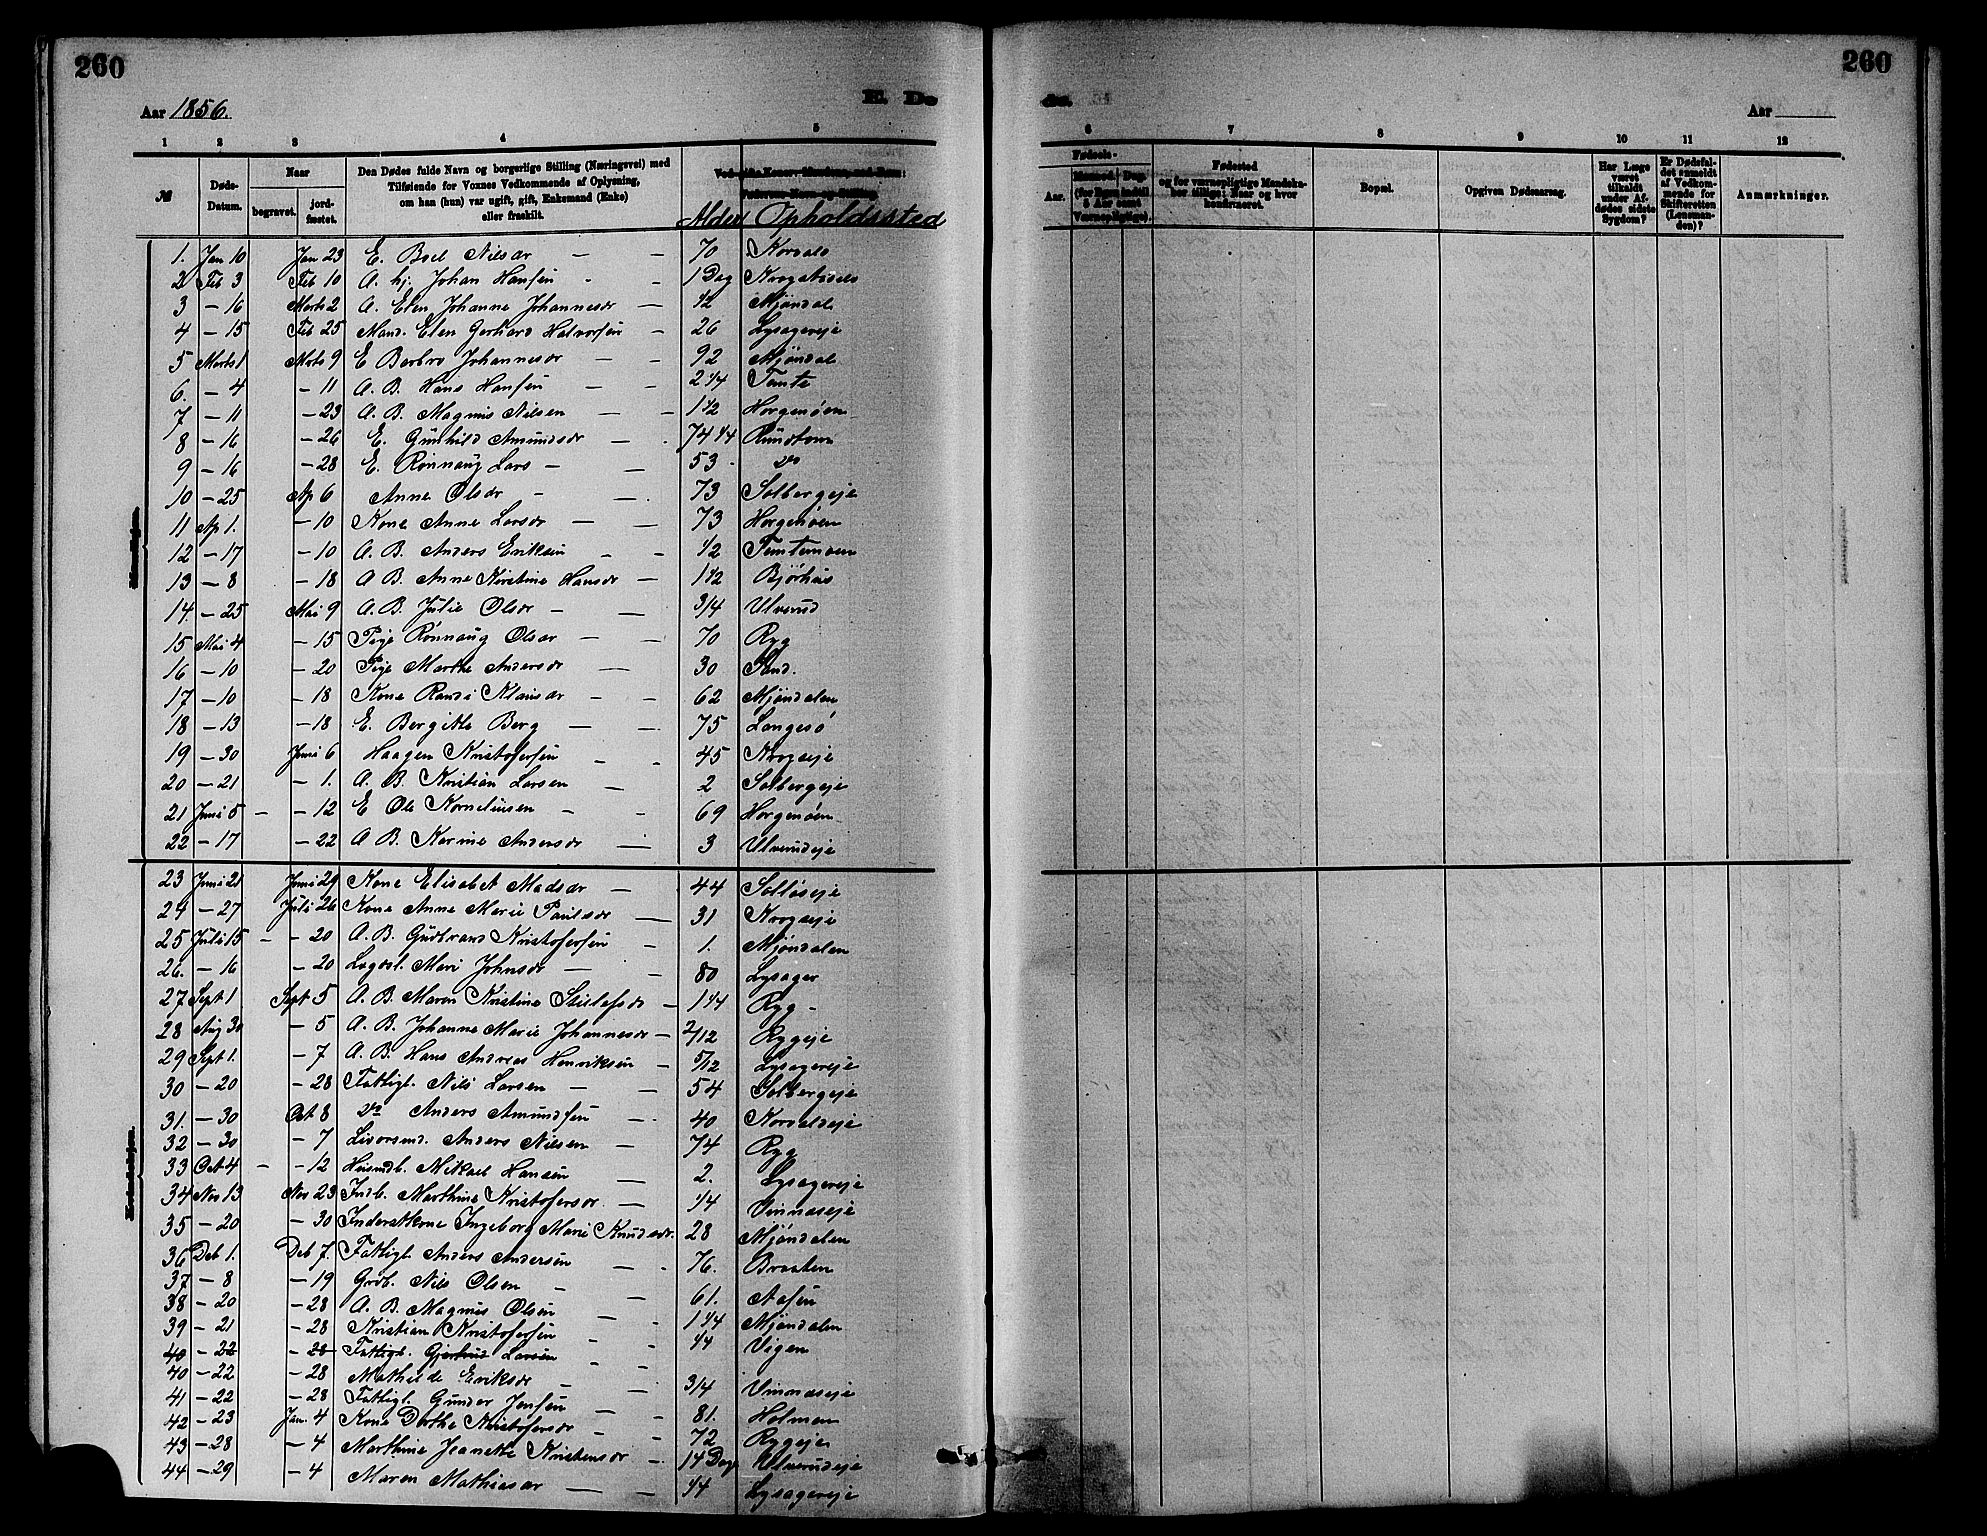 260
260
Aar 1856.
E. Dø
de.
Aar
1 2 3 4 5 6 7 8 9 10 11 12
№
Døds-Datum.
Naar
begravet.
jord-fæstet.
Den Dødes fulde Navn og borgerlige Stilling (Næringsvei) med
Tilføiende for Voxnes Vedkommende af Oplysning,
om han (hun) var ugift, gift, Enkemand (Enke)
eller fraskilt.
Alder
Opholdssted
Fødsels-
Aar.
Maaned. Dag.
(for Børn indtil
5 Aar samt
Værnepligtige).
Fødested
og for værnepligtige Mandskaber tillige i hvor
konfirmeret.
Bopæl.
Opgiven Dødsaarsag.
Har Læge
været
tilkaldt
under Af-
dødes sidste
Sygdom?
Er Dødsfal-
det anmeldt
af Vedkom-
mende for
Skifteretten
(Lensman-
den)?
Anmærkninger.
Mandkjøn.
Kvindekjøn.
1. Jan 10 Jan 23 E. Boel Nilsdr — — 70 Korvald
2 Feb 3 Feb 10 A. hj. Johan Hansen - - 1 Dag Krogstadels
3 — 16 Marts 2 A. Elen Johanne Johannesdr — 1/2 Mjøndal
4 — 15 Feb 25 Mand. Elen Gerhard Halvorsen — 26 Lysagereje
5 Marts 1 Mats 9 E Berbro Johannesdr — — 92 Mjøndal
6. — 4 — 11 A. B. Hans Hansen — — 2 1/4 Temte
7 — 11 — 23 A. B. Magnus Nilsen — — 1 1/2 Horgenøen
8 — 16 — 26 E. Gunhild Amundsdr — . 74 1/4 Rundtom
9 — 16 — 28 E. Rønnaug Lars — — 53 . do
10 — 25 Ap 6 Anne Olsdr - — . 73 Solbergeje
11 Ap 1. — 10 Kone Anne Larsdr — — 73 Horgenøen
12 — 17 — 10 A. B. Anders Eriksen - - 1/2 Temtemoen
13 — 8 — 18 A B. Anne Kirstine Hansdr — 1 1/2 Bjørhus
14. — 25 Mai 9 A. B. Julie Olsdr — — 3/4 Ulverud
15 Mai 4 — 15 Pige Rønnaug Olsdr — — 70 Ryg
16 — 10 — 20 Pige Marthe Andersdr — 30 Sand.
17 — 10 — 18 Kone Randi Klausdr — — 62 Mjøndalen
18 — 13 — 18 E. Bergitte Berg — — . 75 Langesø
19 — 30 Juni 6 Haagen Kristofersen - - 45 Krogseje
20 — 21 — 1. A. B. Kristian Larsen — 2 Solbergeje
21 Juni 5 — — 12 E Ole Kornelinsen - - 69 Horgenøen
22 — 17 — 22 A B. Karine Andersdr — 3 Ulverudeje
23 Juni 21 Juni 29 Kone Elisabet Madsdr — 44 Solløseje
24 — 27 Juli 26 Kone Anne Marie Paulsdr — 31 Krogseje
25 Juli 15 — — 20 A. B. Gudbrand Kristofersen - 1. Mjøndalen
26. — 16 — 20 Lægdsl. Mari Johnsdr — — 80 Lysager
27 Sept 1 Sept 5 A. B. Maren Kristine — 1 1/4 Ryg -
28 Aug 30 — 5 A. B. Johanne Marie Johannesdr — 2/12 Rygeje
29 Sept 1. — 7 A. B. Hans Andreas Henriksen — 5/12 Lysagereje
30 — 20 — 28 Fattigl. Nils Larsen — — 54 Solbergeje
31. — 30 Oct 8 do Anders Amundsen — . 40 Korvaldeje
32 — 30 — 7 Livørsmd. Anders Nilsen — 74 Ryg
33 Oct 4 — — 12 Husmdb. Mikael Hansen — 2. Lysagereje
34 Nov 13 Nov 23 Indb. Marthine Kristofersdr. — 1/4 Vinnæseje
35 — 20 — 30 Inderstkone Ingeborg Marie Knudsdr. 28 Mjøndalen
36 Deb 1. Deb 7. Fattigl. Anders Andersen — . 76. Braaten
37 — 8 — 19 Grdb. Nils Olsen - 61. Aasen
38 — 20 — 28 A. B. Magnus Olsen — - 1 1/4 Mjøndalen
39 — 21 — 28 Kristian Kristofersen - . 1/4 Vigen
40 — 22 — 28 Fattigl. Gjertrud Larsen - -
40 — 22 — 28 Mathilde Eriksdr - — 3/4 Vinnæseje
41 — 22 — 28 Fattigl. Gunder Jensen — - 81. Holmen
42 — 23 Jan. 4 Kone Dorthe Kristofersdr - - 72 Rygeje
43 — 28 — 4 Marthine Jeanette Kristensdr — . 14 Dage Ulverudeje
44 — 29 — 4 Maren Mathiasdr — — 1/4 Lysagereje